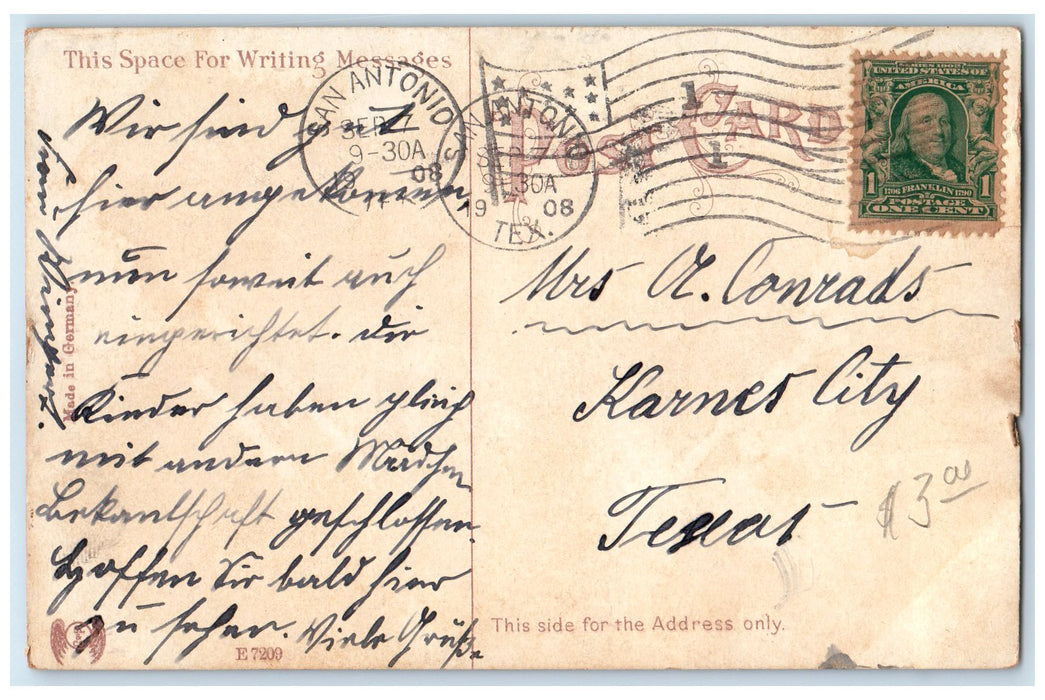 This Space For Writing Messages
Wir sind gut
hier angekommen,
nun soweit auch
eingerichtet. Die
Kinder haben gleich
mit andern Mädchen
Bekantschaft geschlossen.
Hoffen Sie bald hier
zu sehen. Viele Grüße
von
Made in Germany.
E 7209
SAN ANTONIO
SEP 7
9-30A
08
SAN ANTONIO
SEP 7
9-30A
19 08
TEX.
1
1
POST CARD
SERIES 1902
UNITED STATES OF
AMERICA
1706 FRANKLIN 1790
1 1
POSTAGE
ONE CENT
Mrs A. Conrads
Karnes City
Texas
$3.00
This side for the Address only.